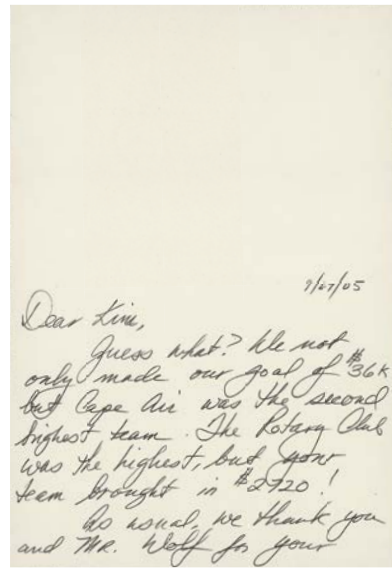 9/27/05
Dear Kim,
Guess what? We not
only made our goal of $36K
but Cape Air was the second
highest team. The Rotary Club
was the highest, but your
team brought in $2920!
As usual, we thank you
and Mr. Wolf for your